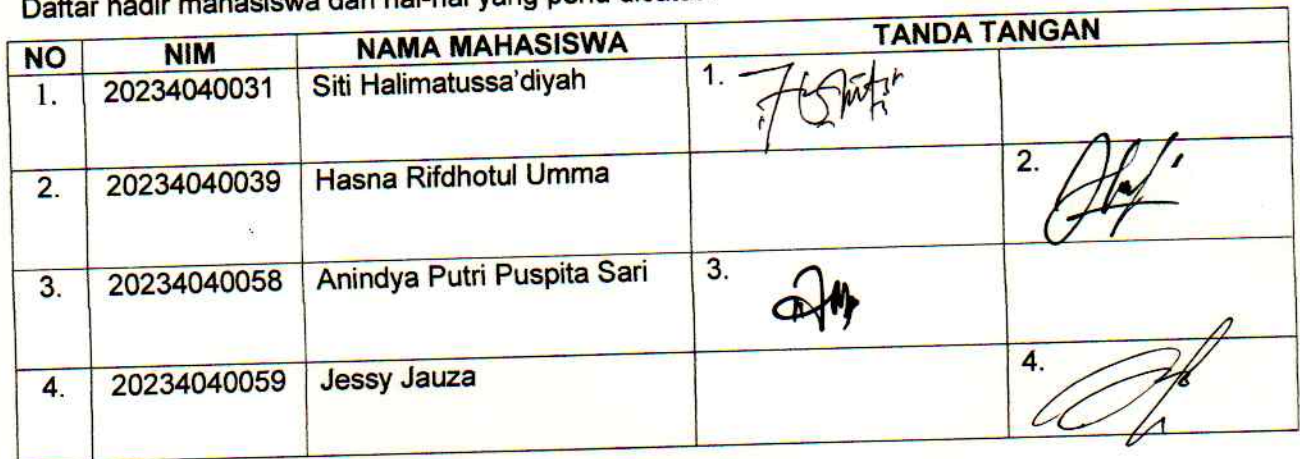 Daftar hadir mahasiswa dan hal-hal yang perlu
NO NIM NAMA MAHASISWA TANDA TANGAN
1. 20234040031 Siti Halimatussa'diyah 1.
2. 20234040039 Hasna Rifdhotul Umma 2.
3. 20234040058 Anindya Putri Puspita Sari 3.
4. 20234040059 Jessy Jauza 4.